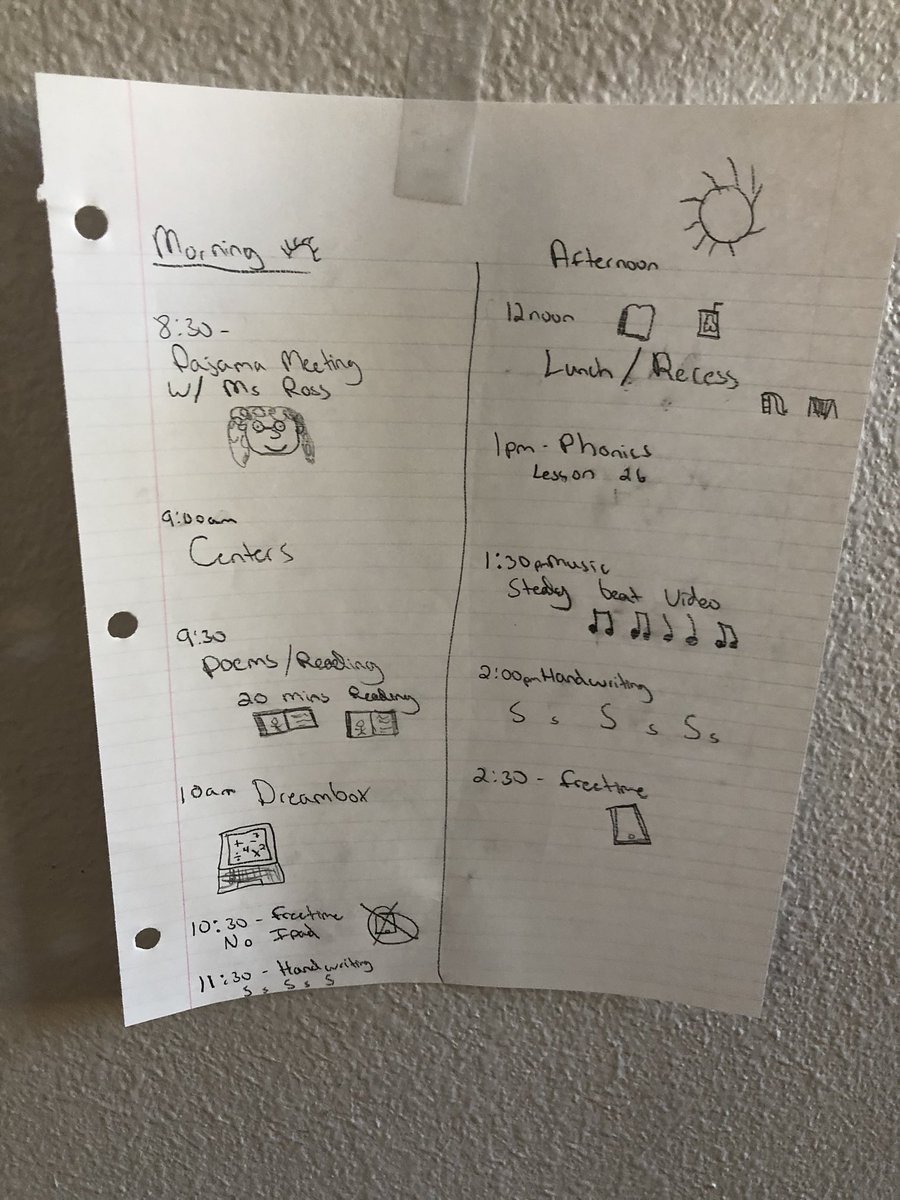 Morning
8:30 -
Pajama Meeting
w/ Ms Ross
9:00am
Centers
9:30
Poems/Reading
20 mins Reading
10am Dreambox
+ - 4 ÷ x 2
10:30 - freetime
No Ipad
11:30 - Handwriting
S s S s S
Afternoon
12noon
Lunch / Recess
1pm - Phonics
Lesson 26
1:30pm Music
Steady beat Video
2:00pm Handwriting
S s S s S s
2:30 - freetime